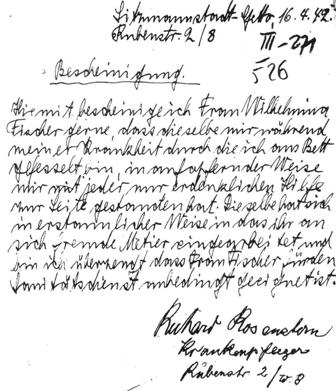 Litzmannstadt-Getto, 16.4.42.
Rubenstr. 2/8
III-271
526
Bescheinigung.
Hiemit bescheinige ich Frau Wilhelmina
Fischer gerne, dass dieselbe mir während
meiner Krankheit durch die ich ans Bett
gefesselt bin, in aufopfernder Weise
mir mit jeder nur erdenklichen Hilfe
zur Seite gestanden hat. Dieselbe hat sich
in erstaunlicher Weise in das ihr an
sich fremde Metier eingearbeitet und
bin ich überzeugt dass Frau Fischer, für den
Sanitätsdienst unbedingt geeignet ist.
Richard Rosenstern
Krankenpfleger
Rübenstr 2/w 8